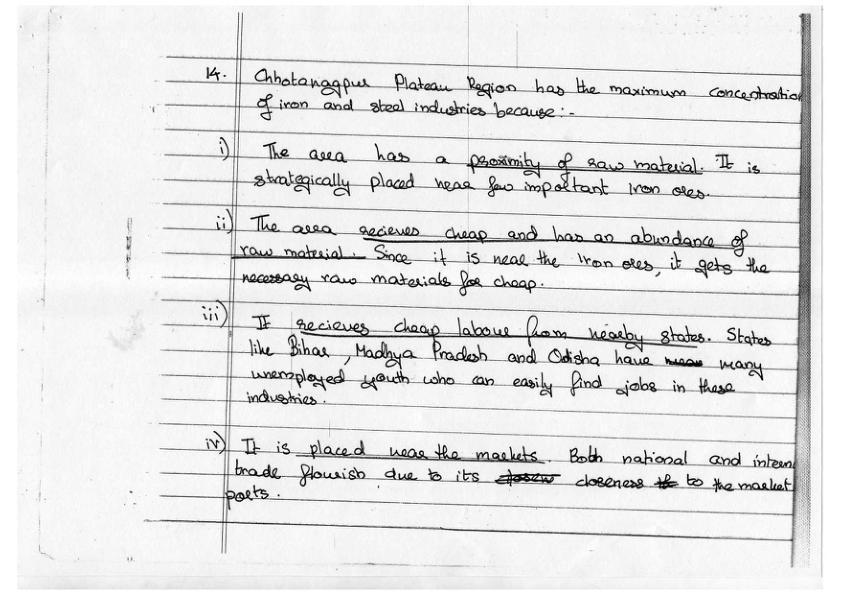 14. Chhotanagpur Plateau Region has the maximum concentration
of iron and steel industries because:-
i) The area has a proximity of raw material. It is
strategically placed near few important Iron ores.
ii) The area recieves cheap and has an abundance of
raw material. Since it is near the Iron ores, it gets the
necessary raw materials for cheap.
iii) It recieves cheap labour from nearby states. States
like Bihar, Madhya Pradesh and Odisha have many
unemployed youth who can easily find jobs in these
industries.
iv) It is placed near the markets. Both national and intern
trade flourish due to its closeness to the market
ports.